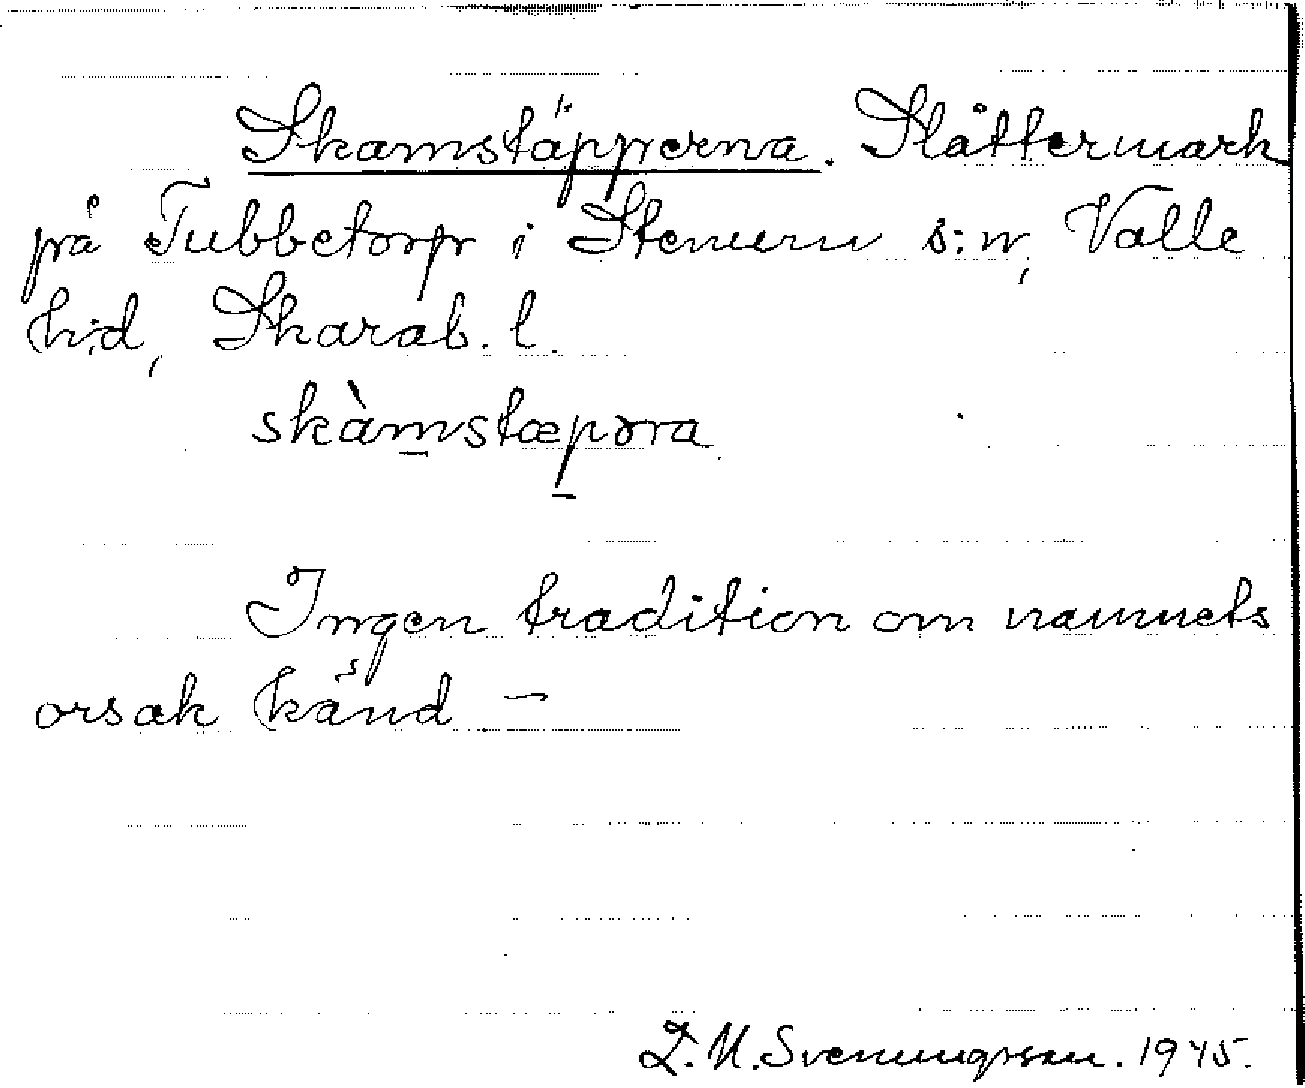 Skamstäpperna. Slåttermark
på Tubbetorp i Stenum s:n, Valle
h:d, Skarab. l.
skàmstæpəra
Ingen tradition om namnets
orsak känd –
Svenungsson. 1945.